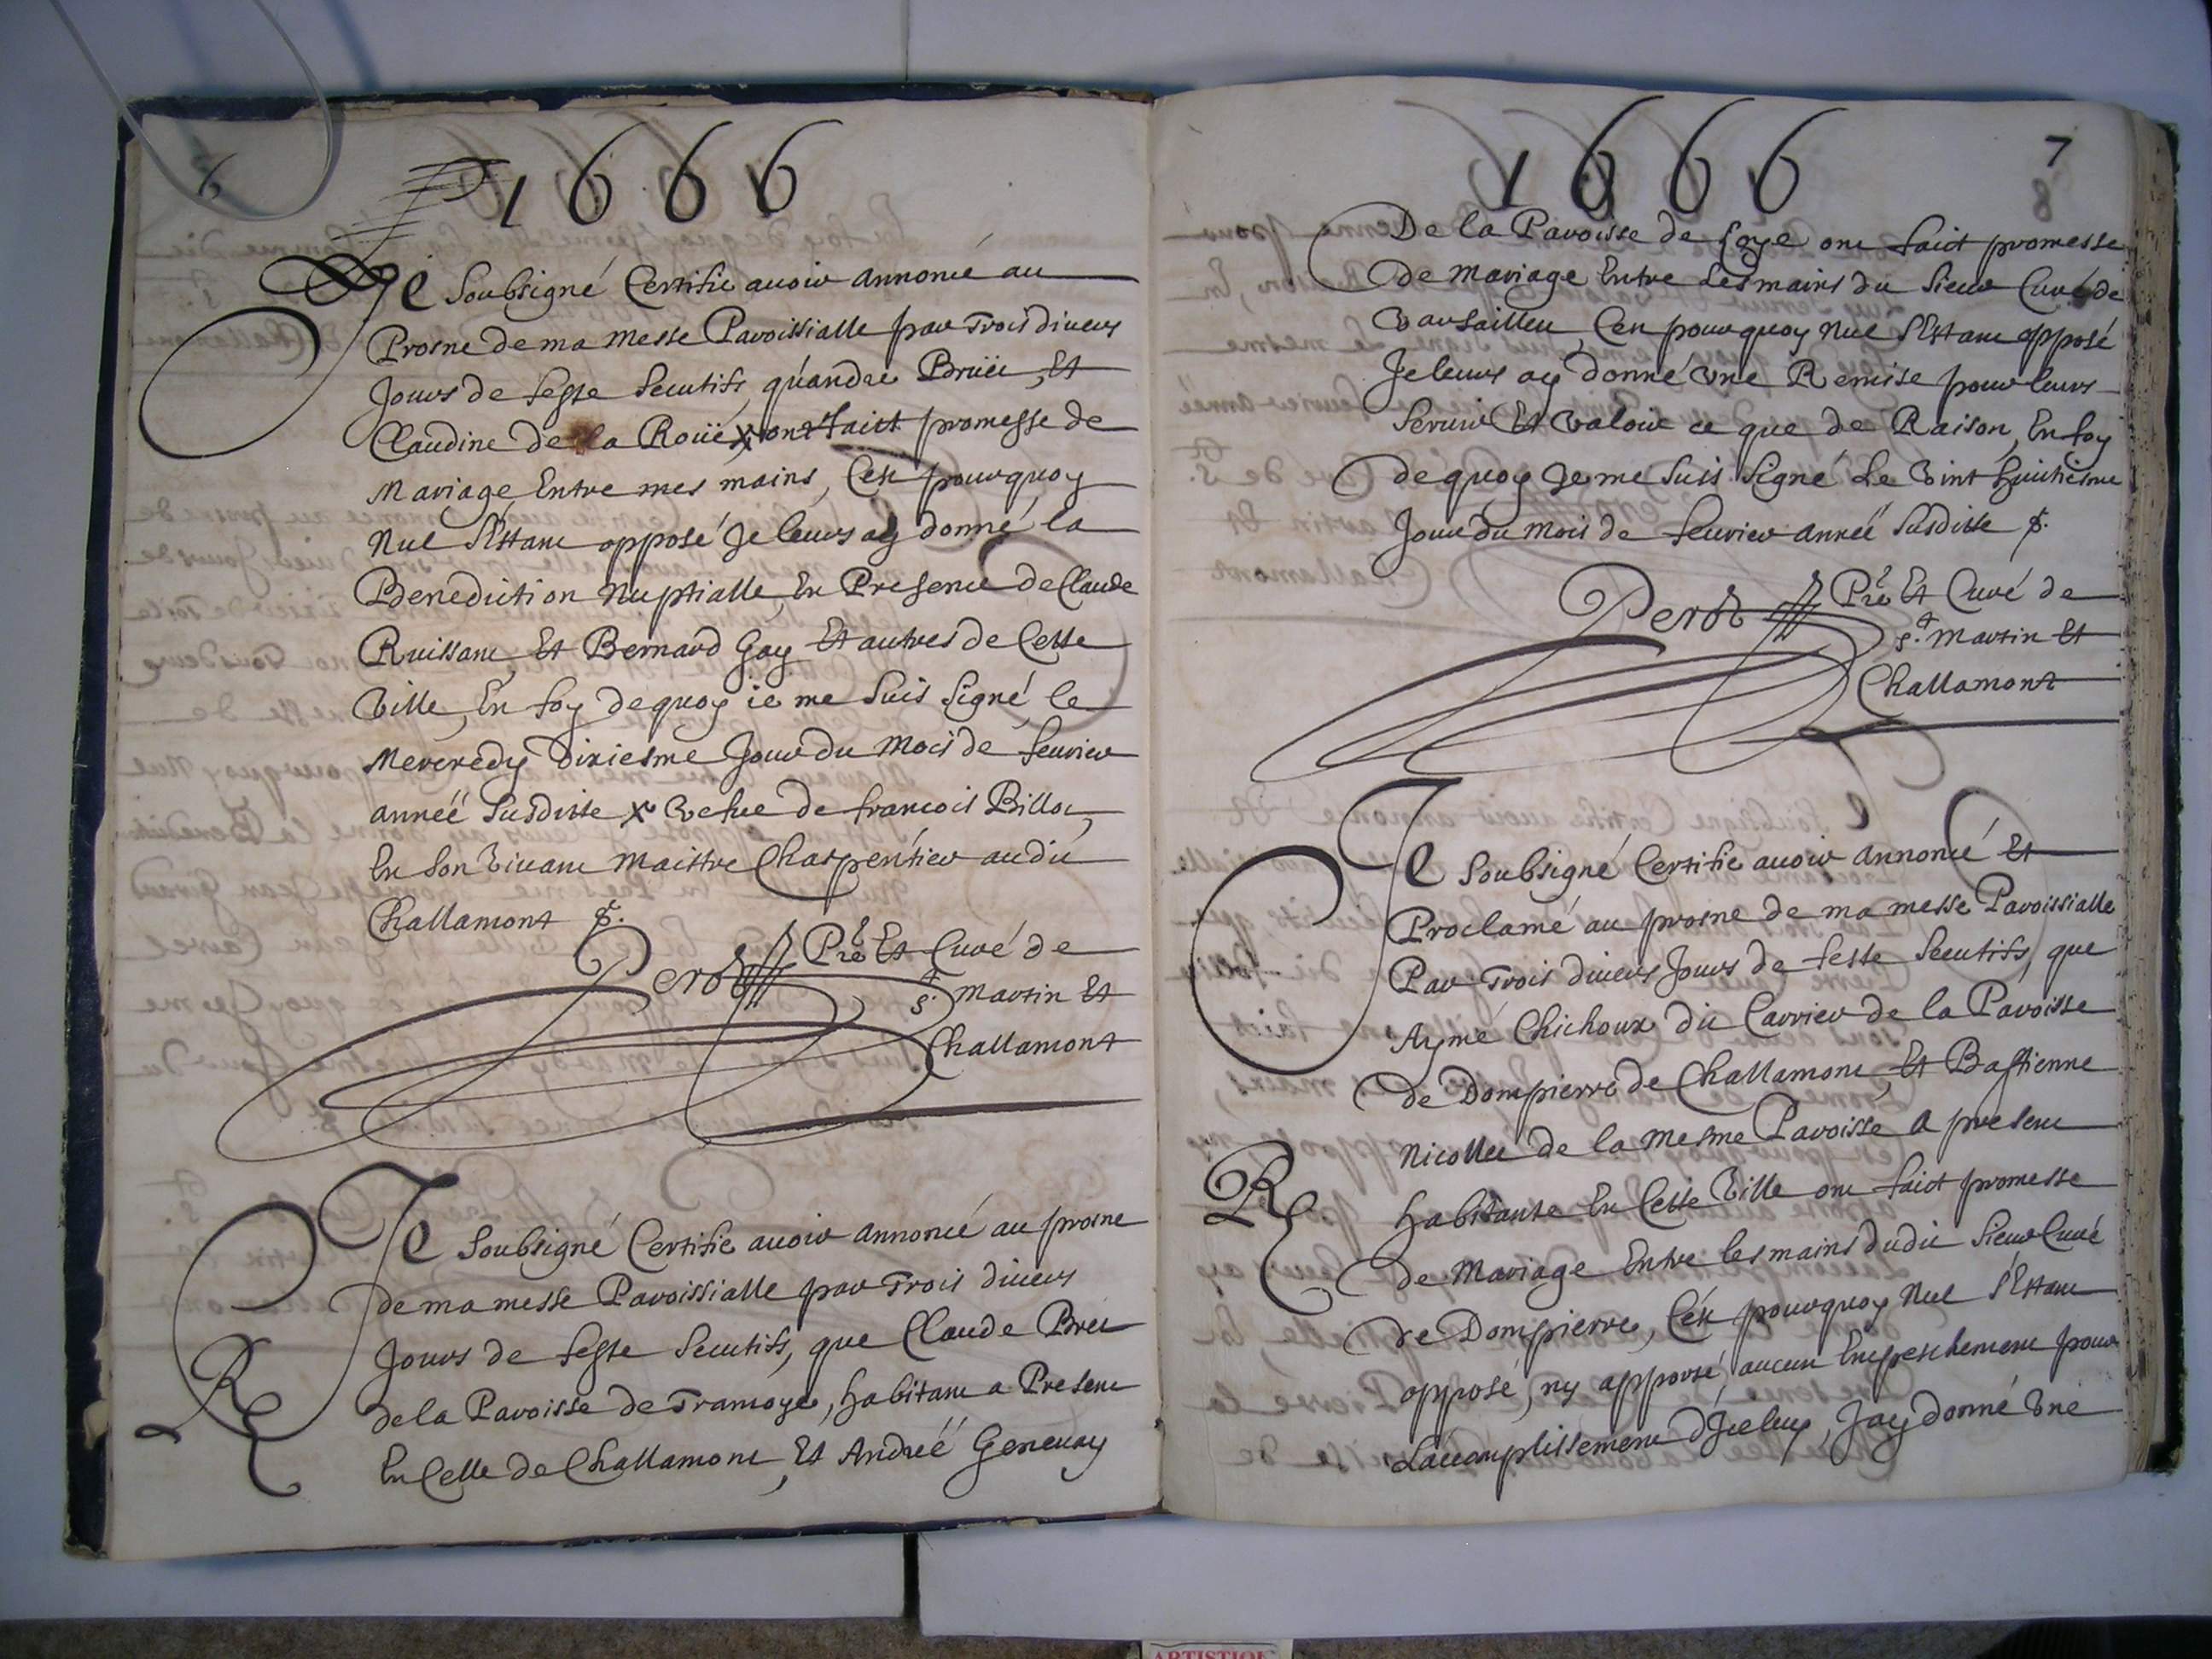 6
1666
Je soubsigné Certifie avoir annoncé au
Prosne de ma messe Paroissialle par Trois divers
Jours de feste secutifs, qu'andré Brüet, Et
Claudine de la Roüe x ont faict promesse de
Mariage Entre mes mains, C'est pourquoy
Nul s'Estant opposé Je leurs ay donné la
Benediction Nuptialle, En Presence de Claude
Ruissant, Et Bernard Gay Et autres de Cette
Ville, En foy dequoy ie me suis signé le
Mercredy Dixiesme Jour du Mois de fevrier
Année susditte x Vefve de francois Billot,
En son vivant Maistre Charpentier audit
Challamont
Perot Pre Et Curé de
St. Martin Et
Challamont
Je soubsigné Certifie avoir annoncé au prosne
de ma messe Paroissialle par Trois divers
Jours de feste secutifs, que Claude Bret
de la Paroisse de Tramoye, habitant a Present
En Celle de Challamont, Et Andréé Genevay
R
1666
7
8
De la Paroisse de Loye ont faict promesse
de Mariage Entre les mains du sieur Curé de
Varsailleu, C'est pourquoy Nul s'Estant opposé
Je leurs ay donné Vne Remise pour leurs
servir Et Valoir ce que de Raison, En foy
dequoy Je me suis signé Le Vint huitiesme
Jour du Mois de fevrier Année susditte
Perot Pre Et Curé de
St. Martin Et
Challamont
Je soubsigné Certifie avoir annoncé Et
Proclamé au prosne de ma messe Paroissialle
Par Trois divers Jours de feste secutifs, que
Aymé Chichoux dit Carrier de la Paroisse
de Dompierre de Challamont, Et Bastienne
Nicollet de la mesme Paroisse a present
R
habitante En Cette Ville ont faict promesse
de Mariage Entre les mains dudit sieur Curé
de Dompierre, C'est pourquoy Nul s'Estant
opposé, ny apporté aucun Empeschement pour
L'accomplissement d'Jceluy, J'ay donné Vne